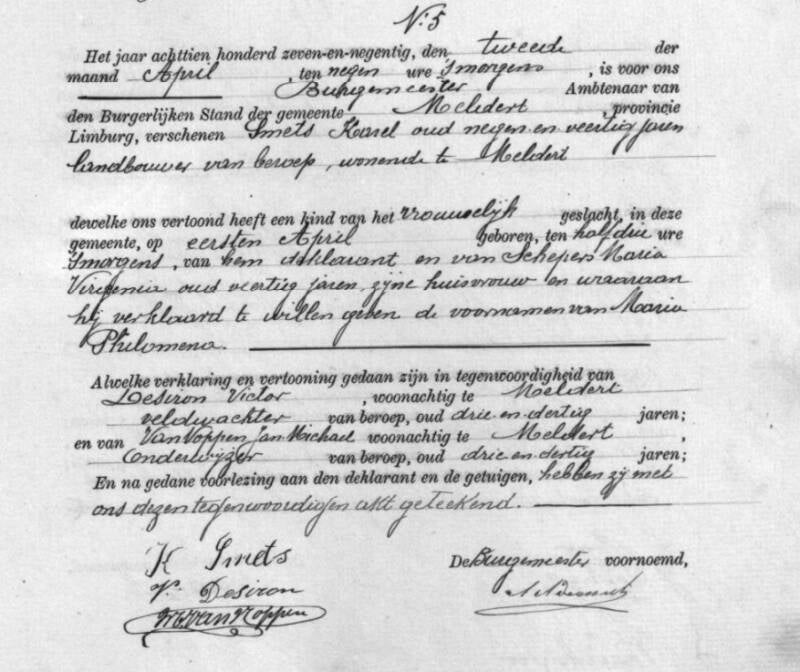 N: 5
Het jaar achttien honderd zeven-en-negentig, den tweede der
maand April, ten negen ure smorgens, is voor ons
Burgemeester Ambtenaar van
den Burgerlijken Stand der gemeente Meldert, provincie
Limburg, verschenen Smets Karel oud negen en veertig jaren
landbouwer van beroep, wonende te Meldert
dewelke ons vertoond heeft een kind van het vrouwelijk geslacht, in deze
gemeente, op eersten April geboren, ten half drie ure
smorgens, van hem deklarant en van Schepers Maria
Virginia oud veertig jaren, zijne huisvrouw en waaraan
hij verklaard te willen geven de voornamen van Maria
Philomena.
Alwelke verklaring en vertooning gedaan zijn in tegenwoordigheid van
Desiron Victor, woonachtig te Meldert
veldwachter van beroep, oud drie en dertig jaren;
en van Van Noppen Jan Michael woonachtig te Meldert,
Onderwijzer van beroep, oud drie en dertig jaren;
En na gedane voorlezing aan den deklarant en de getuigen, hebben zij met
ons dezen tegenwoordigen akt geteekend.
K Smets
De Burgemeester voornoemd,
V. Desiron
Van Noppen